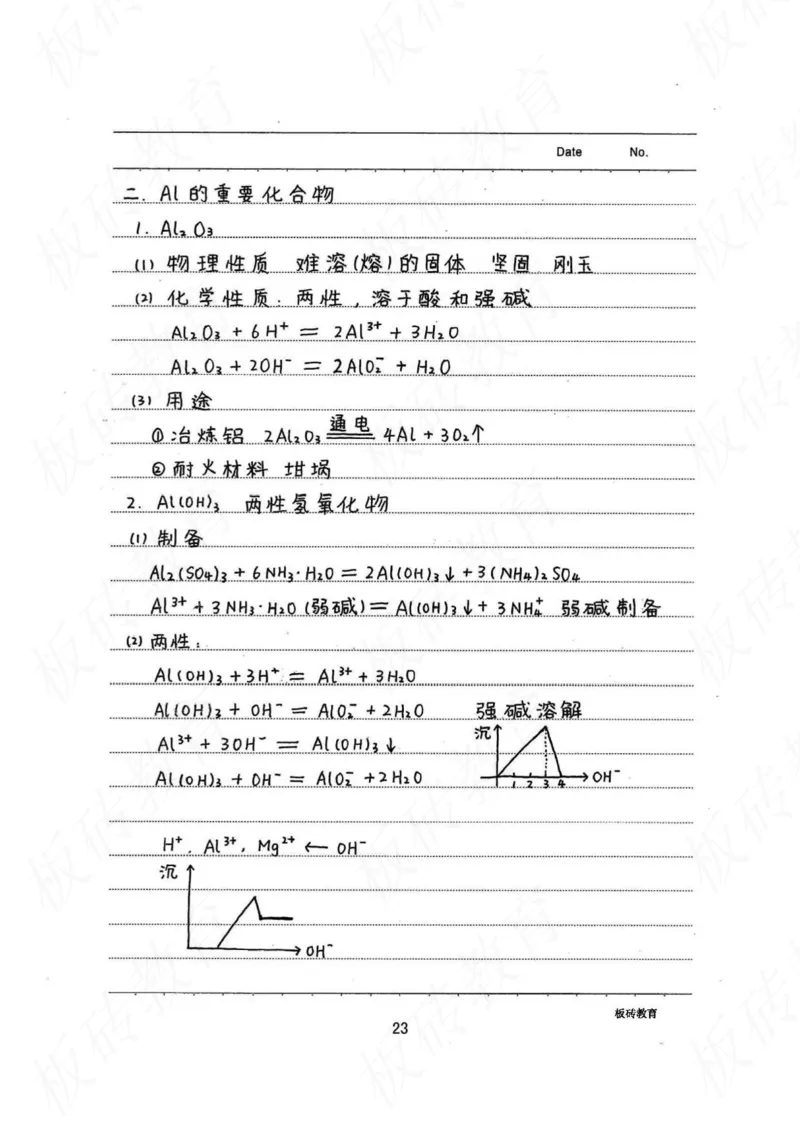 Date No.
二. Al 的重要化合物
1. Al₂O₃
(1) 物理性质 难溶(熔)的固体 坚固 刚玉
(2) 化学性质. 两性, 溶于酸和强碱
Al₂O₃ + 6H⁺ = 2Al³⁺ + 3H₂O
Al₂O₃ + 2OH⁻ = 2AlO₂⁻ + H₂O
(3) 用途
① 冶炼铝 2Al₂O₃ 通电 4Al + 3O₂↑
② 耐火材料 坩埚
2. Al(OH)₃ 两性氢氧化物
(1) 制备
Al₂(SO₄)₃ + 6NH₃·H₂O = 2Al(OH)₃↓ + 3(NH₄)₂SO₄
Al³⁺ + 3NH₃·H₂O (弱碱) = Al(OH)₃↓ + 3NH₄⁺ 弱碱制备
(2) 两性:
Al(OH)₃ + 3H⁺ = Al³⁺ + 3H₂O
Al(OH)₃ + OH⁻ = AlO₂⁻ + 2H₂O 强碱溶解
Al³⁺ + 3OH⁻ = Al(OH)₃↓
Al(OH)₃ + OH⁻ = AlO₂⁻ + 2H₂O
沉
1 2 3 4
OH⁻
H⁺, Al³⁺, Mg²⁺ ← OH⁻
沉
OH⁻
板砖教育
23
板砖教育